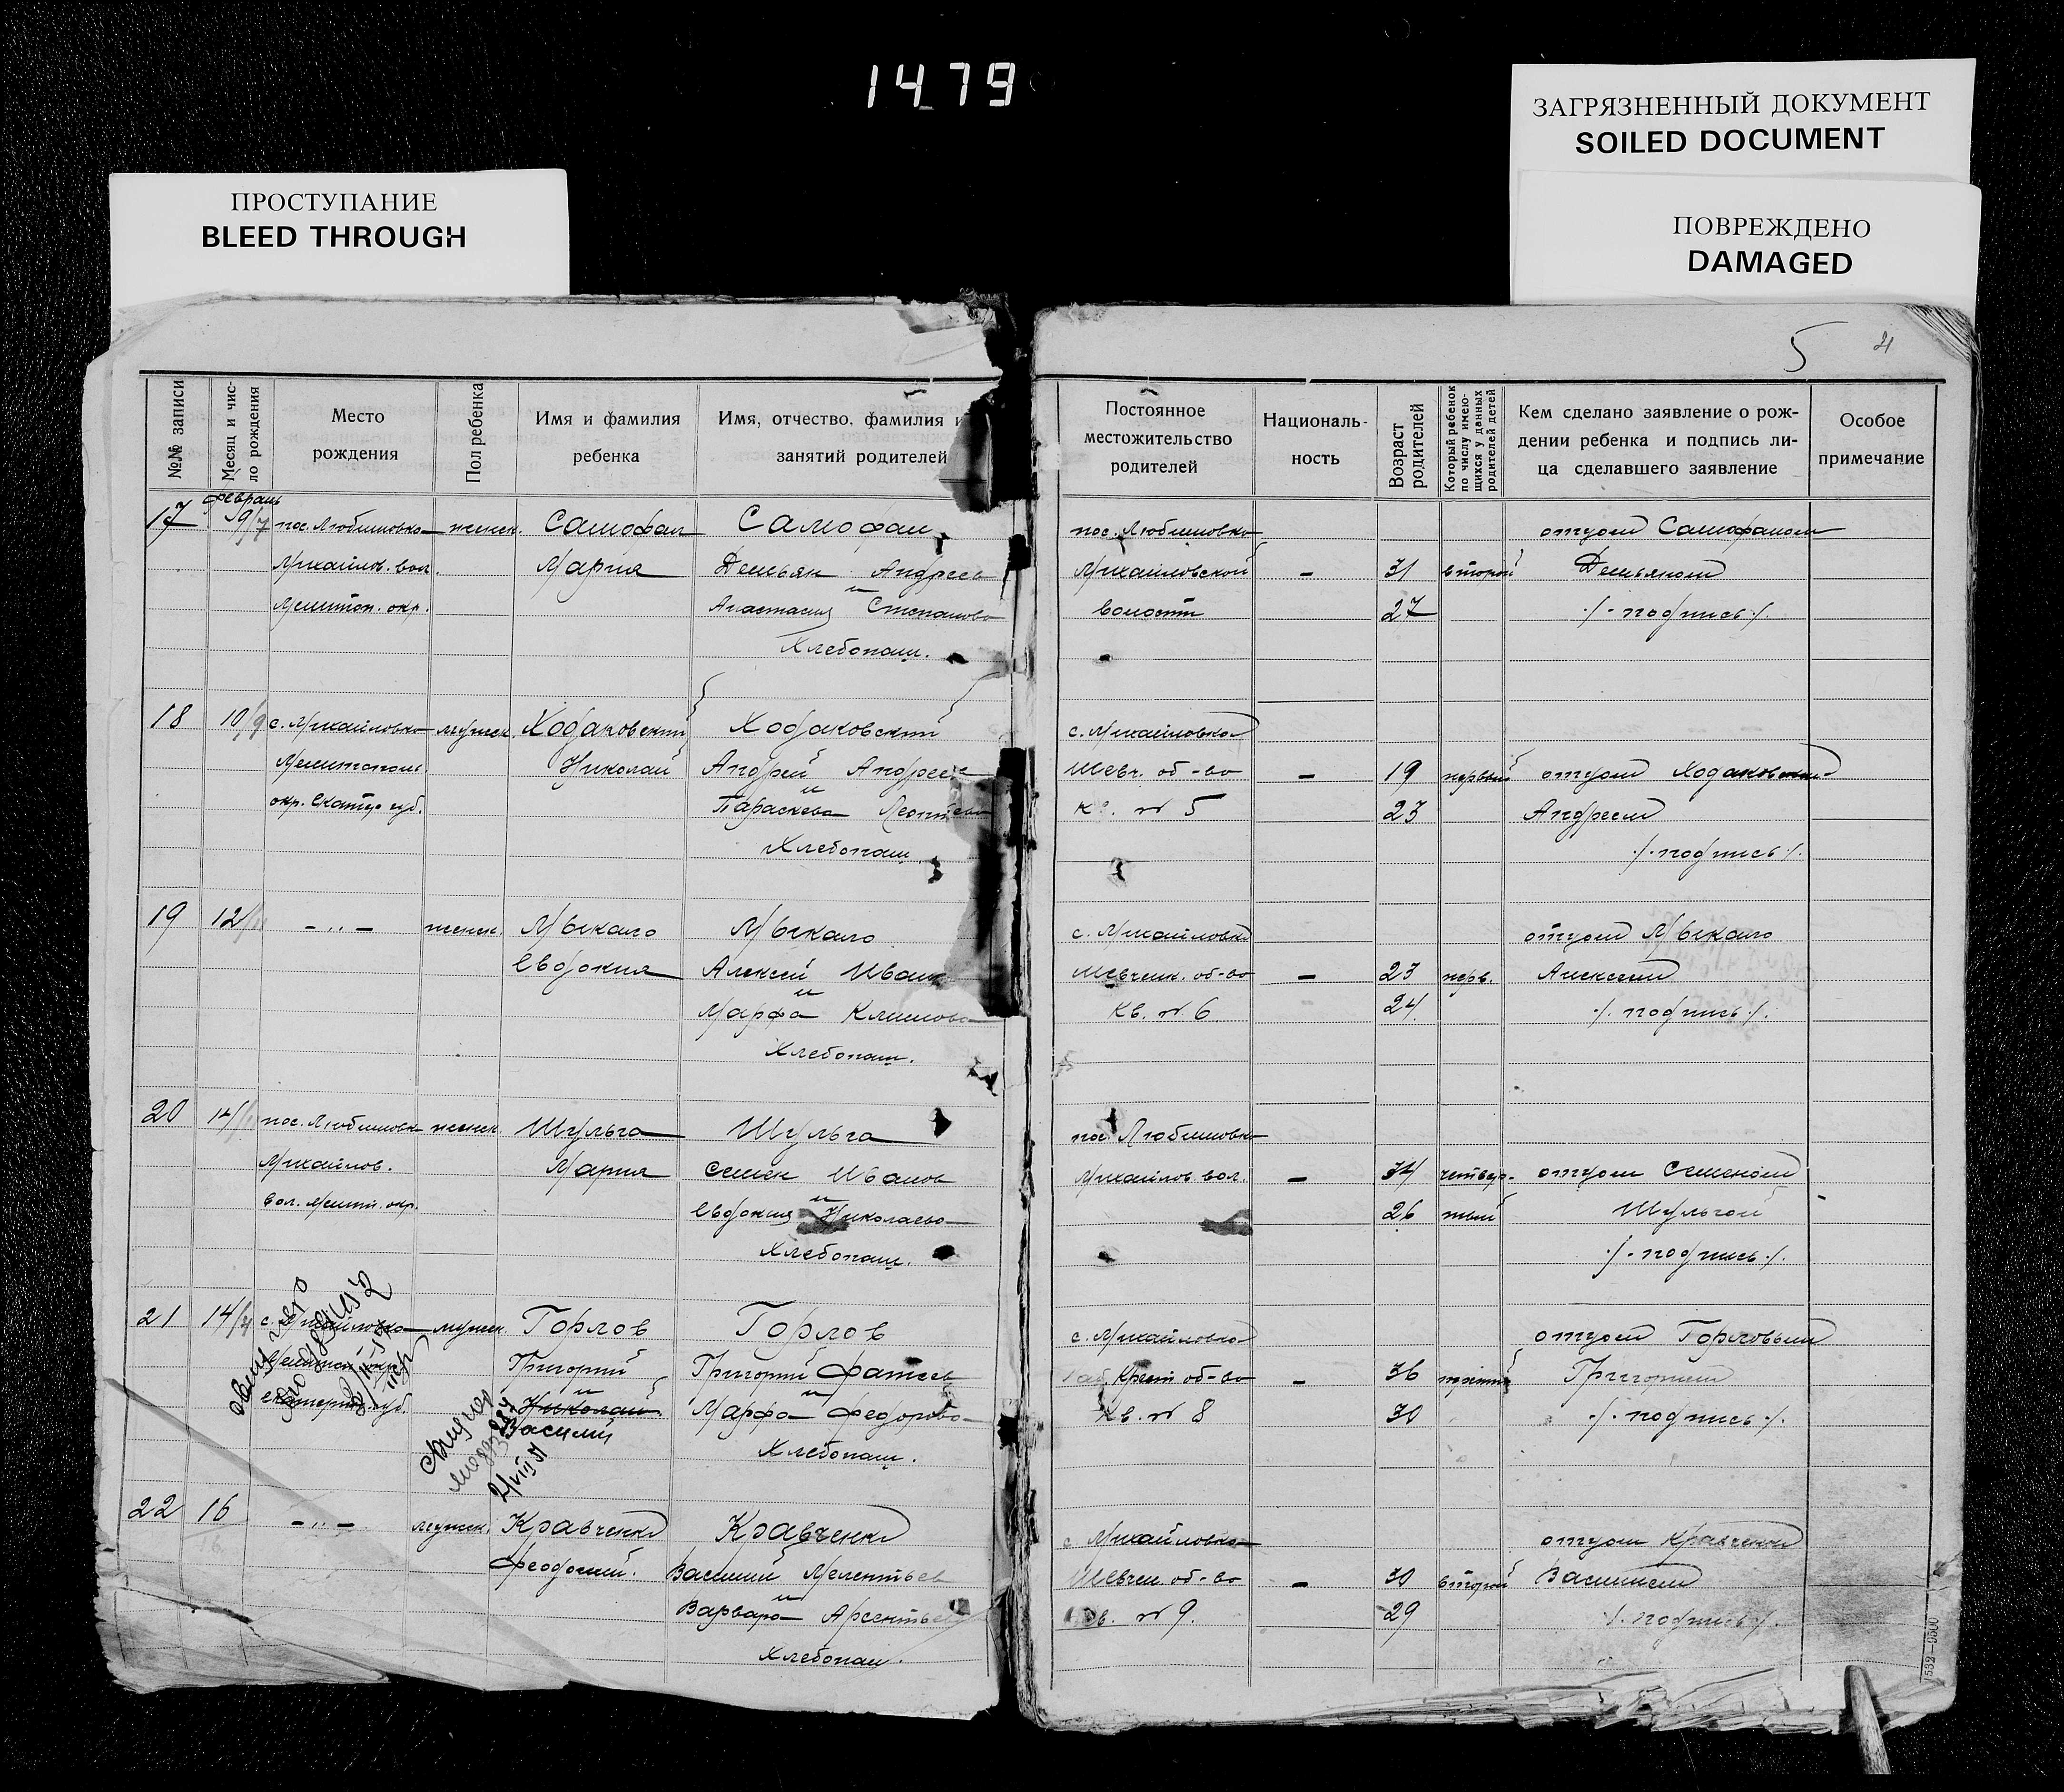 1479
ЗАГРЯЗНЕННЫЙ ДОКУМЕНТ
SOILED DOCUMENT
ПРОСТУПАНИЕ
BLEED THROUGH
ПОВРЕЖДЕНО
DAMAGED
5
21
№№ записи
Месяц и чис-
ло рождения
Место
рождения
Пол ребенка
Имя и фамилия
ребенка
Имя, отчество, фамилия и
занятий родителей
Постоянное
местожительство
родителей
Националь-
ность
Возраст
родителей
Который ребенок
по числу имею-
щихся у данных
родителей детей
Кем сделано заявление о рож-
дении ребенка и подпись ли-
ца сделавшего заявление
Особое
примечание
февраль
17 9/7 пос. Любимовка женск. Самофал Самофал пос. Любимовка отцом Самофалом
Михайлов. вол. Мария Демьян Андреев Михайловской - 31 второй Демьяном
Мелитоп. окр. и Анастасия Степанова волости 27 /-подпись/.
Хлебопаш.
18 10/9 с. Михайловка мужск. Ходаковский Ходаковский с. Михайловка
Мелитополь. Николай Андрей Андреев Шевч. об-во - 19 первый отцом Ходаковским
окр. Екатер. губ. и Параскева Леонтьева кв. № 5 23 Андреем
Хлебопаш. /-подпись/.
19 12 -"- женск. Мыкало Мыкало с. Михайловка отцом Мыкало
Евдокия Алексей Иван Шевченк. об-во - 23 перв. Алексеем
и Марфа Климова кв. № 6 24 /. подпись/.
Хлебопаш.
20 14 пос. Любимовка женск. Шульга Шульга пос. Любимовка
Михайлов. Мария Семен Иванов Михайлов. вол. - 34 четвер- отцом Семеном
вол. Мелит. окр. и Евдокия Николаева 26 тый Шульгой
Хлебопаш. /-подпись/.
21 14 с. Михайловка мужск. Горлов Горлов с. Михайловка отцом Горловым
Мелитоп. окр. Григорий Григорий Фатеев Крест. об-во - 36 третий Григорием
Екатерин. губ. и Николай и Марфа Федорова кв. № 8 30 /. подпись/.
Василий Хлебопаш.
22 16 -"- мужск. Кравченко Кравченко с. Михайловка отцом Кравченко
Феодосий. Василий Мелентьев Шевчен. об-во - 30 второй Василием
и Варвара Арсентьева кв. № 9. 29 /. подпись/.
Хлебопаш.
1532—9500